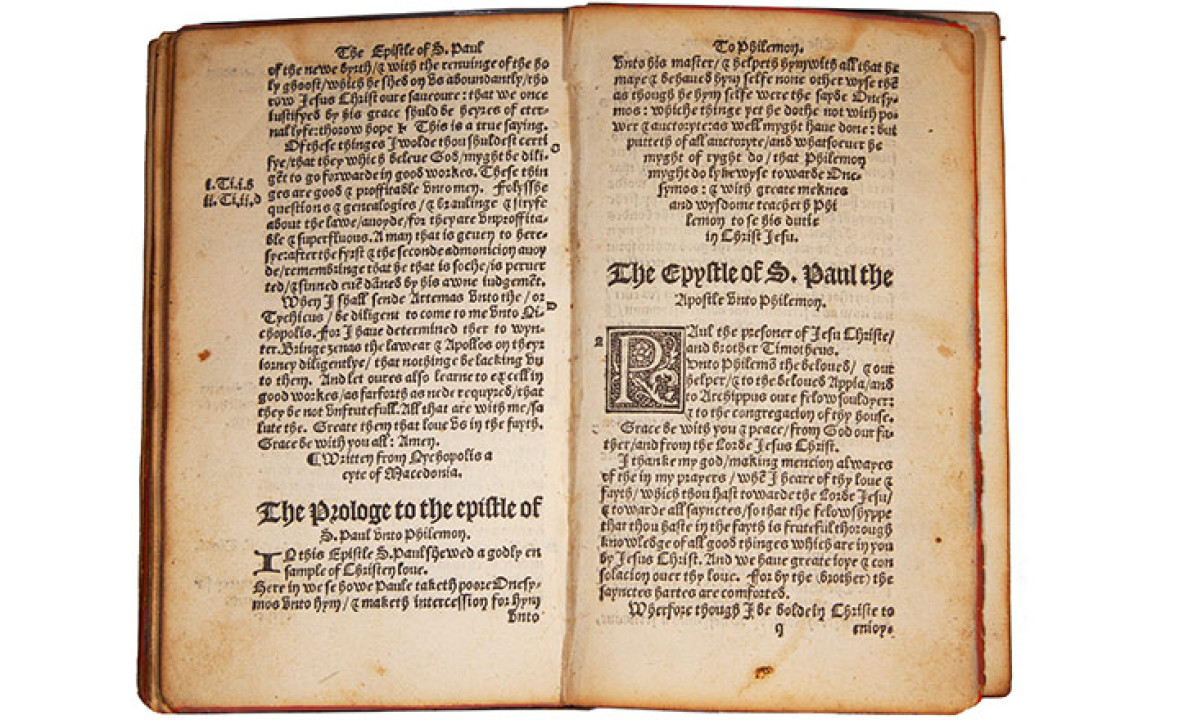 The Epistle of S. Paul
of the newe byrth/& with the renuinge of the ho
ly ghoost/which he shed on vs aboundantly/tho
row Jesus Christ oure saveoure: that we once
iustifyed by his grace shuld be heyres of eter-
nal lyfe: thorow hope. This is a true saying.
Of these thinges I wolde thou shuldest certi
fye/that they which beleve God/myght be dili-
gēt to go forwarde in good workes. These thin
ges are good & proffitable vnto men. Folysshe
questions & genealogies/& braulinge & stryfe
about the lawe/avoyde/for they are vnproffita-
ble & superfluous. A man that is geven to here-
sye: after the fyrst & the seconde admonicion avoy
de/remembringe that he that is soche/is perver
ted/& sinned evē dāned by his awne iudgemēt.
When I shall sende Artemas vnto the/or
Tychicus/be diligent to come to me vnto Ni-
chopolis. For I have determined ther to wyn-
ter. Bringe zenas the lawear & Apollos on theyr
iorney diligentlye/that nothinge be lacking vn
to them. And let oures also learne to excell in
good workes/as farforth as nede requyred/that
they be not vnfrutefull. All that are with me/sa
lute the. Greate them that love vs in the fayth.
Grace be with you all: Amen.
¶Written from Nychopolis a
cyte of Macedonia.
i.Ti.i.
ii.Ti.ii.
C
D
The Prologe to the epistle of
S. Paul vnto Philemon.
IN this Epistle S. Paul shewed a godly en
sample of Christen love.
Here in we se howe Paule taketh poore Onesy-
mos vnto hym/& maketh intercession for hym
vnto
To Philemon.
vnto his master/& helpeth hym with all that he
maye & behaved hym selfe none other wyse thē
as though he hym selfe were the sayde Onesy-
mos: whiche thinge yet he dothe not with po-
wer & auctoryte: as well myght have done: but
putteth of all auctoryte/and whatsoever he
myght of ryght do/that Philemon
myght do lyke wyse towarde One-
symos: & with greate meknes
and wysdome teacheth Phi
lemon to se his dutie
in Christ Jesu.
The Epystle of S. Paul the
Apostle vnto Philemon.
PAul the presoner of Jesu Christe/
and brother Timotheus.
Vnto Philemō the beloved/& our
helper/& to the beloved Appia/and
to Archippus oure felowsouldyer:
& to the congregacion of thy house.
Grace be with you & peace/from God our fa-
ther/and from the Lorde Jesus Christ.
I thanke my god/making mencion alwayes
of the in my prayers/whē I heare of thy love &
fayth/which thou hast towarde the Lorde Jesu/
& towarde all saynctes/so that the felowshyppe
that thou haste in the fayth is fruteful thorough
knowledge of all good thinges which are in you
by Jesus Christ. And we have greate ioye & con
solacion over thy love. For by the (brother) the
saynctes hartes are comforted.
Wherfore though I be bolde in Christe to
q
enioy-